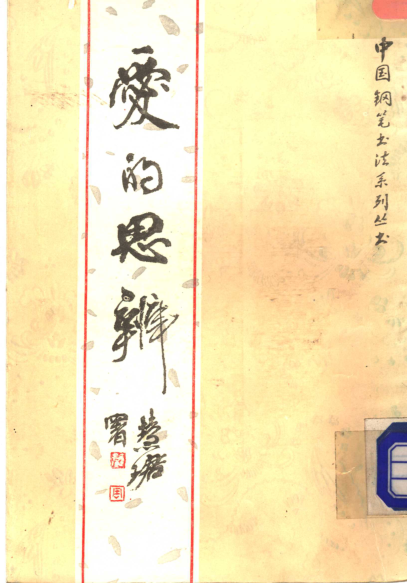 中国钢笔书法系列丛书
愛的思辨
慧珺
署
周